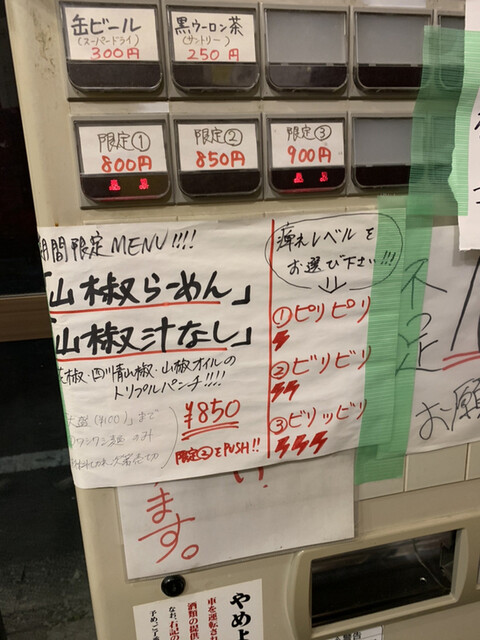 缶ビール
(スーパードライ)
300円
黒ウーロン茶
(サントリー)
250円
限定①
800円
限定②
850円
限定③
900円
期間限定MENU!!!!
「山椒らーめん」
「山椒汁なし」
花椒・四川青山椒・山椒オイルの
トリプルパンチ!!!!
大盛(¥100)まで
¥850
限定②をPUSH!!
痺れレベルを
お選び下さい!!!
①ピリピリ
②ビリビリ
③ビリッビリ
不足
お願
ます。
やめよ
車を運転され
酒類の提供
なお、右記の
予めご了承